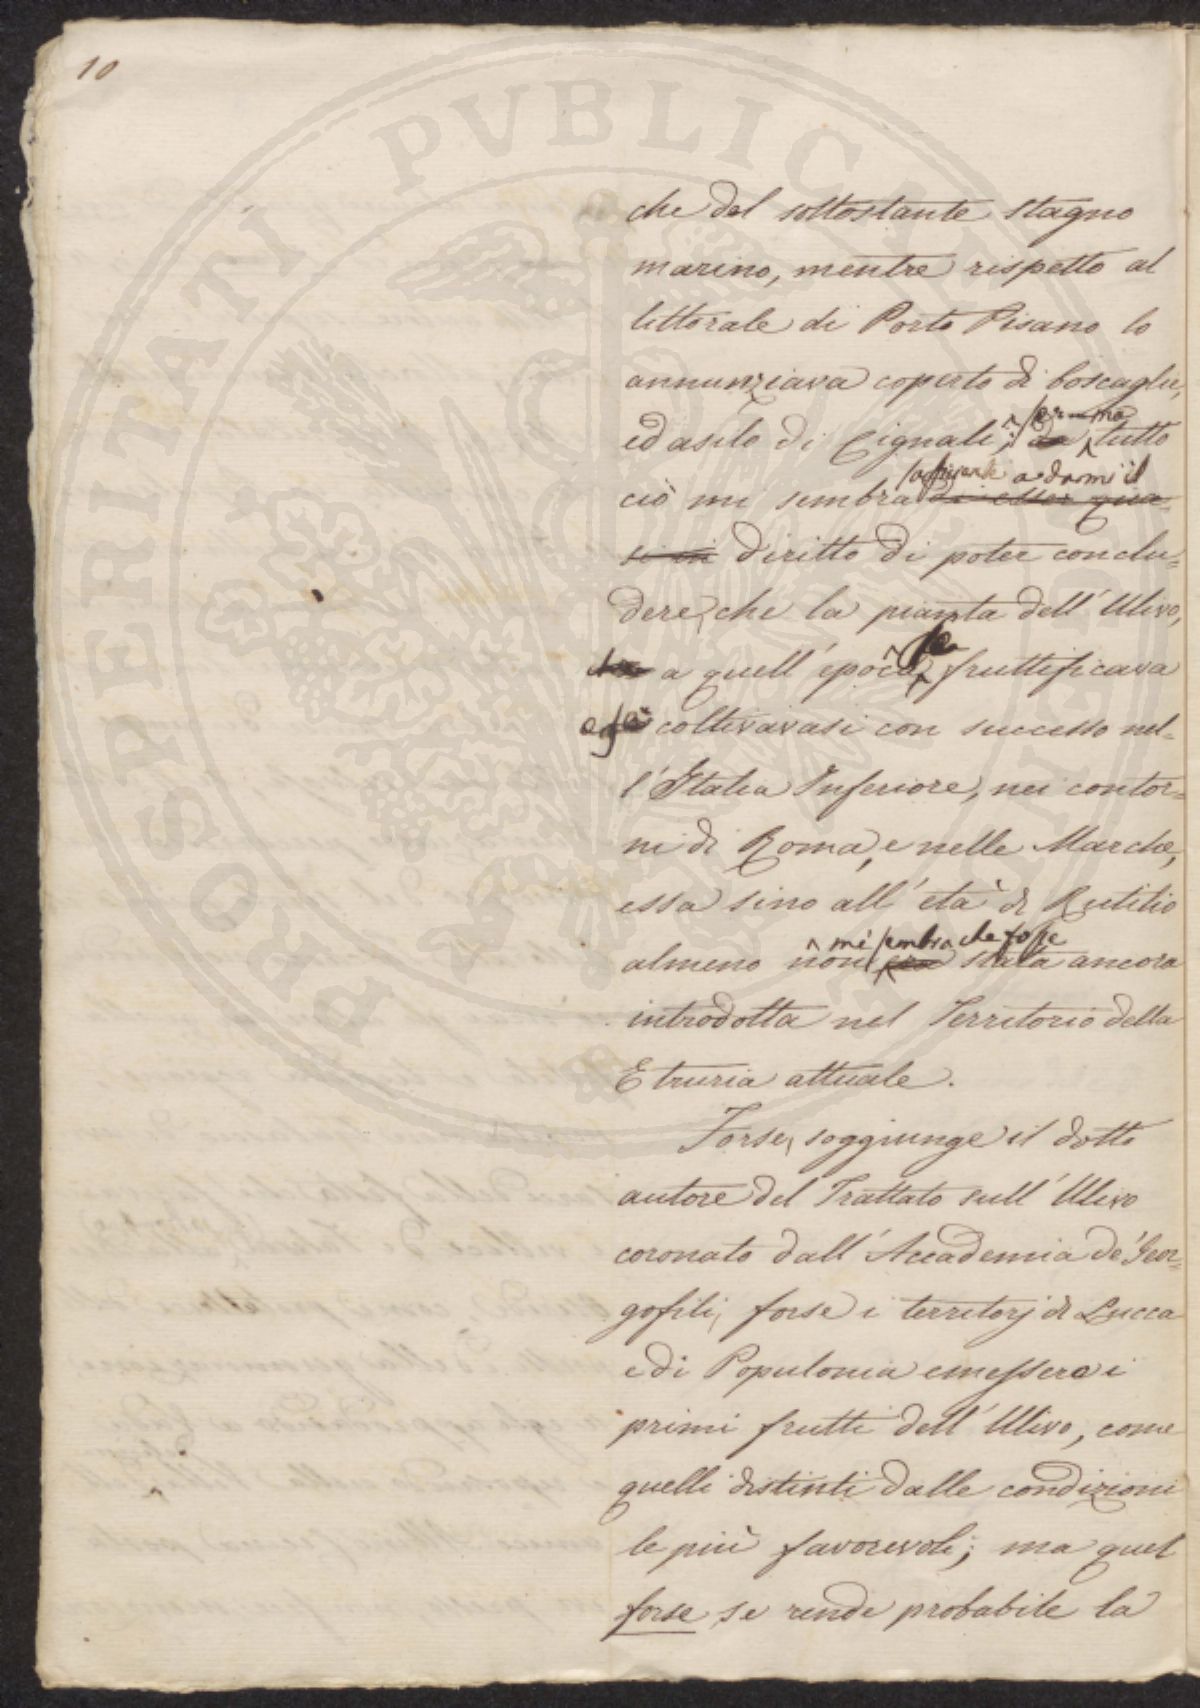 10
PROSPERITATI PVBLICAE
che del sottostante stagno
marino, mentre rispetto al
littorale di Porto Pisano lo
annunziava coperto di boscaglie,
ed asilo di Cignali; tutto
aspirante a darmi il
ciò mi sembra di esser qua-
si in diritto di poter conclu=
dere, che la pianta dell' Ulivo,
se
a quell' epoca fruttificava
e coltivavasi con successo nel=
l' Italia Inferiore, nei contor=
ni di Roma, e nelle Marche,
essa sino all' età di Rutilio
mi sembra che fosse
almeno non era stata ancora
introdotta nel Territorio della
Etruria attuale.
Forse, soggiunge il dotto
autore del Trattato sull' Ulivo
coronato dall' Accademia de' Geor=
gofili, forse i territorj di Lucca
e di Populonia emessero i
primi frutti dell' Ulivo, come
quelli distinti dalle condizioni
le più favorevoli; ma quel
forse se rende probabile la